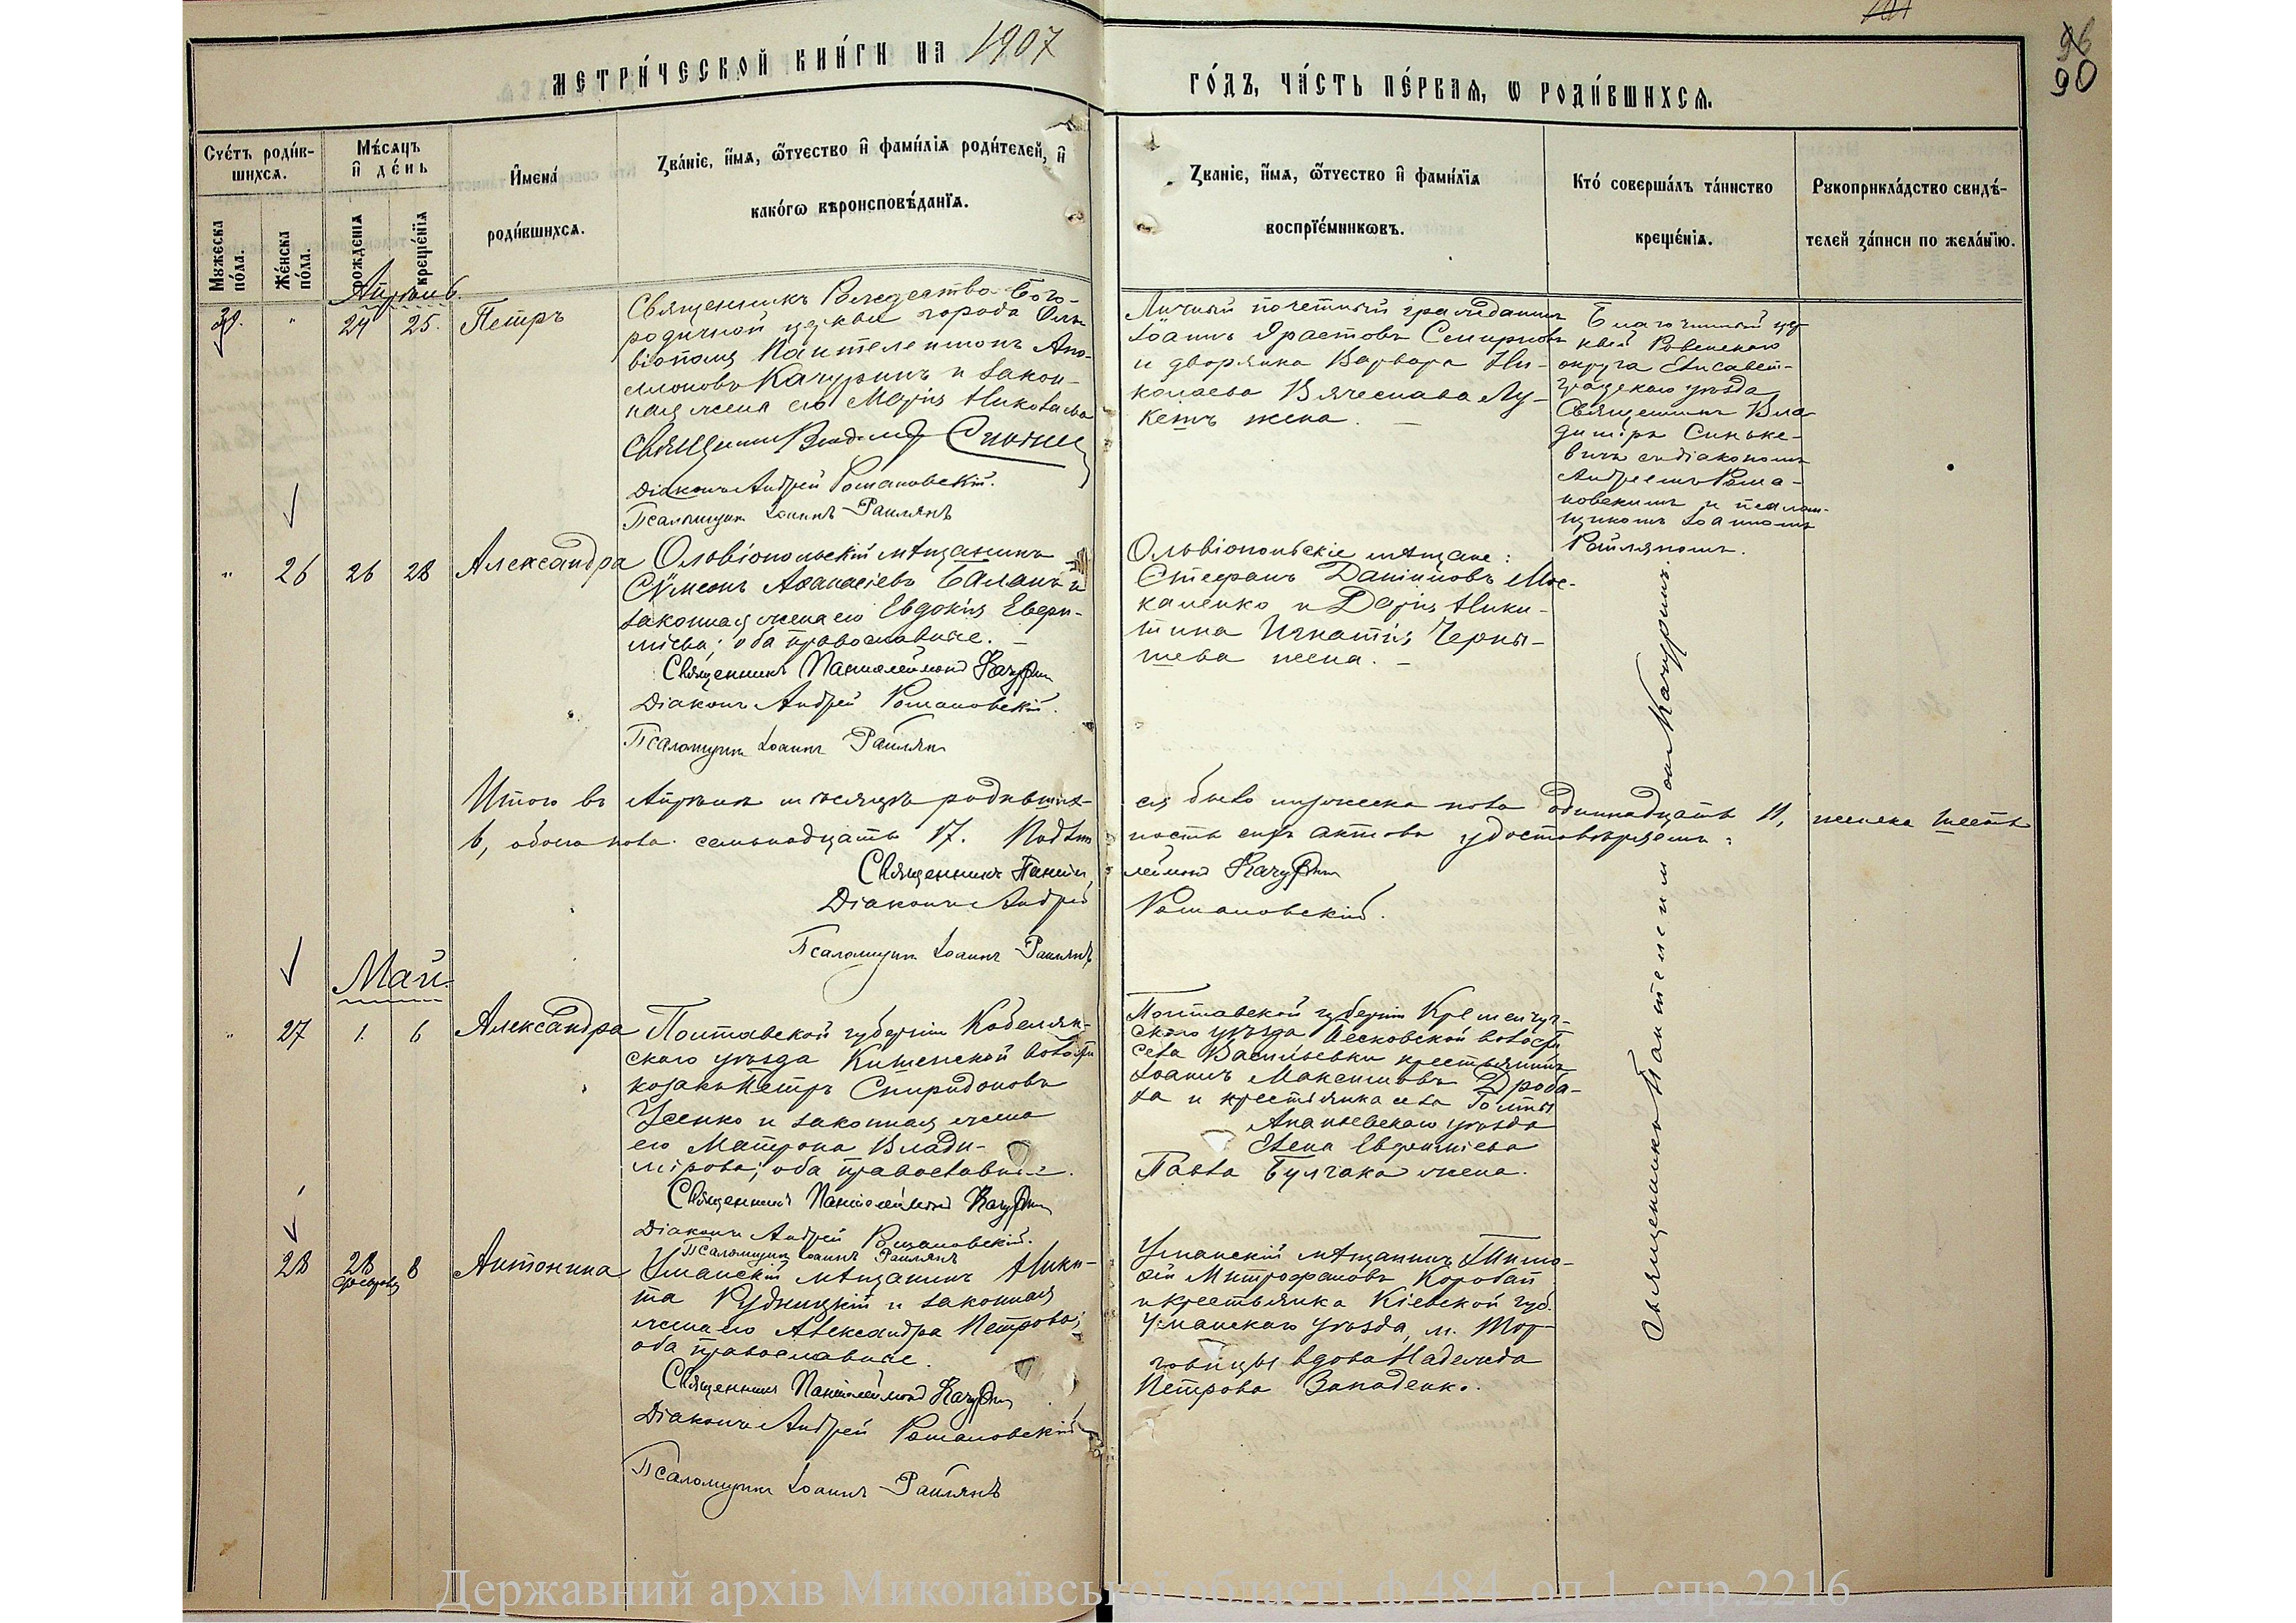 МЕТРИ́ЧЕСКОЙ КНИ́ГИ НА 1907
ГО́ДЪ, ЧА́СТЬ ПЕ́РВАѦ, Ѡ РОДИ́ВШИХСѦ.
96
90
Сче́тъ роди́в-
шихсѧ.
Мужеска по́ла.
Же́нска по́ла.
Мѣ́сѧцъ
и҆ де́нь
рожденїѧ
креще́нїѧ
И҆мена́
роди́вшихсѧ.
Зва́нїе, и҆́мѧ, ѻ҆́тчество и҆ фами́лїѧ роди́телей, и҆
како́гѡ вѣроисповѣ́данїѧ.
Зва́нїе, и҆́мѧ, ѻ҆́тчество и҆ фами́лїѧ
воспрїе́мникѡвъ.
Кто́ соверша́лъ та́инство
креще́нїѧ.
Рукоприкла́дство свидѣ́-
телей за́писи по жела́нїю.
Апрѣль.
39. " 24 25. Петръ
Священникъ Рождество-Бого-
родичной церкви города Оль-
віополя Пантелеимонъ Апо-
ллоновъ Качуринъ и закон-
ная жена его Марія Николаева
Священникъ Владимір
Діаконъ Андрей Романовскій.
Псаломщикъ Іоаннъ Раилянъ
Личный почетный гражданинъ
Іоаннъ Ерастовъ Смирновъ
и дворянка Варвара Ни-
колаева Вячеслава Лу-
кетъ жена. —
Благочинный цер-
квей Ровенскаго
округа Елисавет-
градскаго уѣзда
Священникъ Вла-
диміръ Синьке-
вичъ съ діакономъ
Андреемъ Рома-
новскимъ и псалом-
щикомъ Іоанномъ
Раиляномъ.
" 26 26 28 Александра
Ольвіопольскій мѣщанинъ
Сѵмеонъ Аѳанасіевъ Баланъ и
законная жена его Евдокія Евфи-
міева; оба православные. —
Священникъ Пантелеимонъ Качурин
Діаконъ Андрей Романовскій.
Псаломщикъ Іоаннъ Раилянъ
Ольвіопольскіе мѣщане:
Стефанъ Даніиловъ Мос-
каленко и Дарія Ники-
тина Игнатія Черны-
шева жена. —
Итого въ Апрѣлѣ мѣсяцѣ родивших-
ся было мужеска пола одиннадцать 11, женска шесть
6, обоего пола семьнадцать 17.
ность сихъ актовъ удостовѣряемъ:
Священникъ Пантелеимонъ Качурин
Діаконъ Андрей Романовскій.
Псаломщикъ Іоаннъ Раилянъ
Май.
" 27 1. 6 Александра
Полтавской губерніи Кобеляк-
скаго уѣзда Кишенской волости
козакъ Петръ Спиридоновъ
Усенко и законная жена
его Матрона Влади-
мірова; оба православные.
Священникъ Пантелеимонъ Качурин
Діаконъ Андрей Романовскій.
Псаломщикъ Іоаннъ Раилянъ
Полтавской губерніи Кременчуг-
скаго уѣзда Песковской волости
села Васильевки крестьянинъ
Іоаннъ Максимовъ Дроба-
ха и крестьянка села Голты
Ананьевскаго уѣзда
Елена Евфиміева
Павла Булгака жена.
28 28 февраля 8 Антонина
Уманскій мѣщанинъ Ники-
та Рудницкій и законная
жена его Александра Петрова;
оба православные.
Священникъ Пантелеимонъ Качурин
Діаконъ Андрей Романовскій
Псаломщикъ Іоаннъ Раилянъ
Уманскій мѣщанинъ Тимо-
ѳей Митрофановъ Коробай
и крестьянка Кіевской губ.
Уманскаго уѣзда, м. Тор-
говицы вдова Надежда
Петрова Западенко.
Священникъ Пантелеимонъ Качуринъ.
Державний архів Миколаївської області, ф.484, оп.1, спр.2216